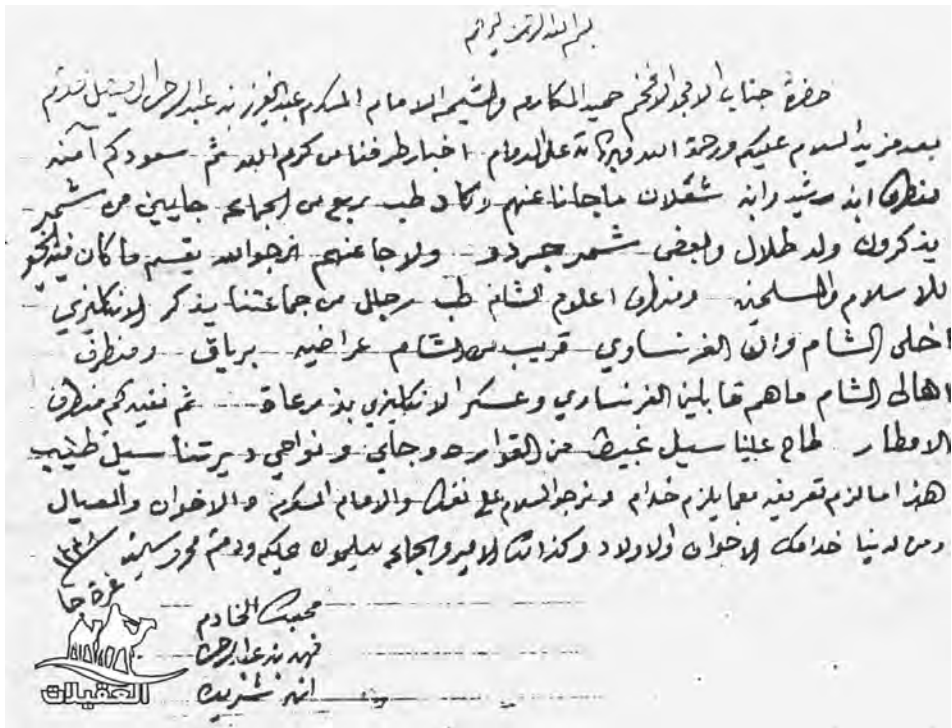 بسم الله الرحمن الرحيم
حضرة جناب الامجد الافخم حميد المكارم والشيم الامام المكرم عبد العزيز بن عبد الرحمن الفيصل
بعد مزيد السلام عليكم ورحمة الله وبركاته على الدوام اخبار طرفنا من كرم الله ثم سعودكم آمنه
منطرف ابن رشيد وابن شعلان ماجانا عنهم وكاد طب ربع من الجماعه جايين من شمر
يذكرون ولد طلال وبعض شمر ولا جا عنهم نرجو الله يقسم ما كان فيه
للاسلام والمسلمين ومنطرف اعلام الشام طب رجال من جماعتنا يذكر الانكليزي
اخلى الشام وان الفرنساوي قريب من الشام عراضيه برياق ومنطرف
اهالي الشام ماهم قابلين الفرنساوي وعسكر الانكليزي بذرعاة ثم نفيدكم منطرف
الامطار طاح علينا سيل غيث من القواره وجاي ونواحي ديرتنا سيل طيب
هذا مالزم تعريفه مع ما يلزم خدام ونرجو السلام على نفسك والامام المكرم والاخوان والعيال
ومن لدينا خدامك الاخوان والاولاد وكذالك الامير والجماعه يسلمون عليكم ودمتم محروسين
غرة جا ١٣٣٨
محبك الخادم
فهد بن عبد الرحمن
ابن شريده
العقيلات